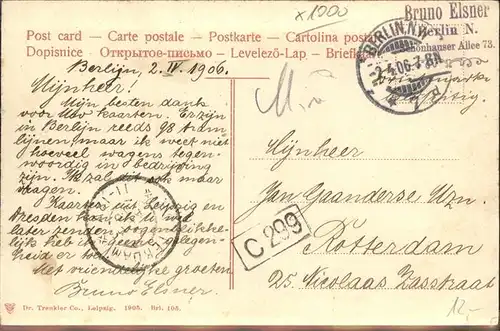 x1000
Bruno Elsner
Berlin N.
Schönhauser Allee 73.
Post card – Carte postale – Postkarte – Cartolina postale
Dopisnice – Открытое-письмо – Levelező-Lap – Briefkaart
BERLIN, N.W.
2.4.06. 7-8N.
Berlijn, 2. IV. 1906.
Mijnheer!
Mijn besten dank
voor Uw kaarten. Er zijn
in Berlin reeds 98 tram
lijnen, maar ik weet niet
hoeveel wagens tegen-
woordig in bedrijving
zijn. Ik zal dit ook maar
vragen.
Kaarten uit Leipzig en
Dresden kan ik U wel
later zenden, oogenblikke-
lijk heb ik geene gelegen-
heid er toe.
Met vriendelijke groeten
Bruno Elsner.
Mijnheer
Jan Gaanderse Wzn.
C 299
Rotterdam
25. Nicolaas Zasstraat
Dr. Trenkler Co., Leipzig. 1905. Brl. 108.
12.-